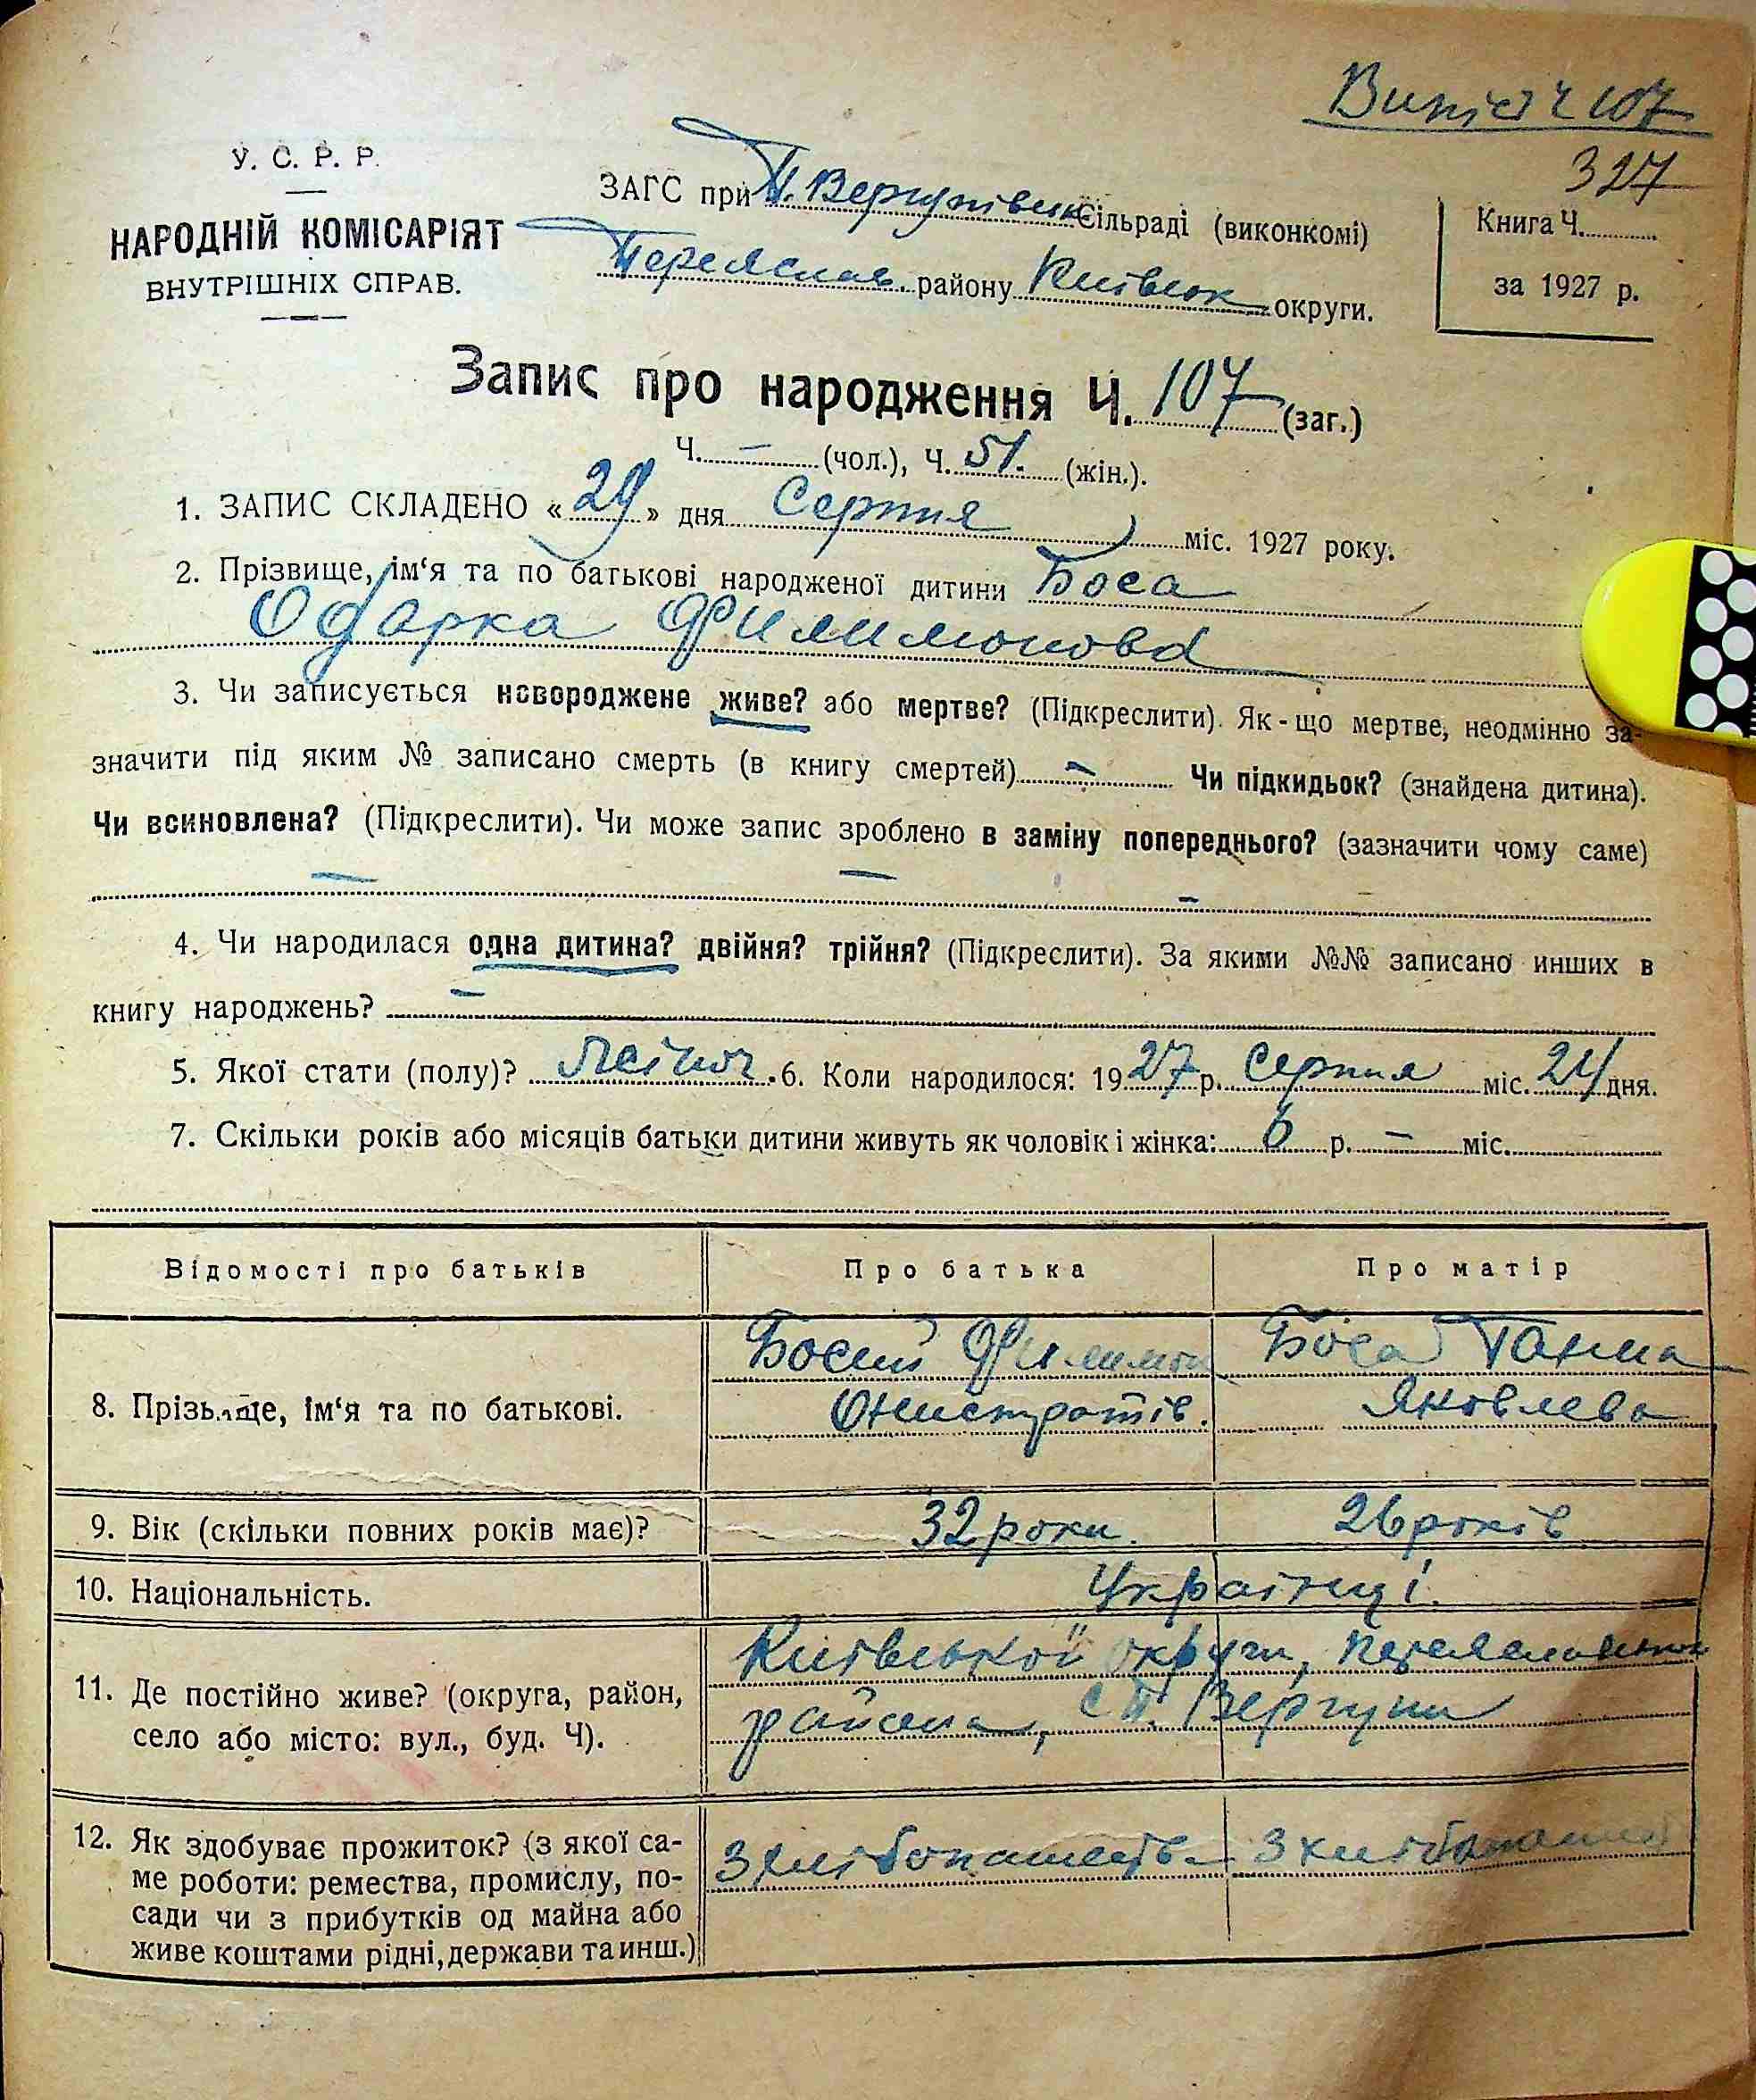 Випис Ч 107
327
У. С. Р. Р.
НАРОДНІЙ КОМІСАРІЯТ
ВНУТРІШНІХ СПРАВ.
ЗАГС при П. Вергунівськ Сільраді (виконкомі)
Переяслав. району Київськ округи.
Книга Ч.
за 1927 р.
Запис про народження Ч. 107 (заг.)
Ч. – (чол.), Ч. 51. (жін.).
1. ЗАПИС СКЛАДЕНО « 29 » дня Серпня міс. 1927 року.
2. Прізвище, ім‘я та по батькові народженої дитини Боса
Одарка Филимонова
3. Чи записується новороджене живе? або мертве? (Підкреслити). Як-що мертве, неодмінно за-
значити під яким № записано смерть (в книгу смертей) – Чи підкидьок? (знайдена дитина).
Чи всиновлена? (Підкреслити). Чи може запис зроблено в заміну попереднього? (зазначити чому саме)
– – –
4. Чи народилася одна дитина? двійня? трійня? (Підкреслити). За якими №№ записано инших в
книгу народжень? –
5. Якої стати (полу)? Жіноч. 6. Коли народилося: 1927 р. Серпня міс. 24 дня.
7. Скільки років або місяців батьки дитини живуть як чоловік і жінка: 6 р. – міс.
Відомості про батьків Про батька Про матір
8. Прізвище, ім‘я та по батькові.
Босий Филимон
Онистратів.
Боса Ганна
Яковлева
9. Вік (скільки повних років має)? 32 роки. 26 років
10. Національність. Українці.
11. Де постійно живе? (округа, район,
село або місто: вул., буд. Ч).
Київської округи, Переяславського
района, с П. Вергуни
12. Як здобуває прожиток? (з якої са-
ме роботи: ремества, промислу, по-
сади чи з прибутків од майна або
живе коштами рідні, держави та инш.)
З хлібопашества З хлібопашест